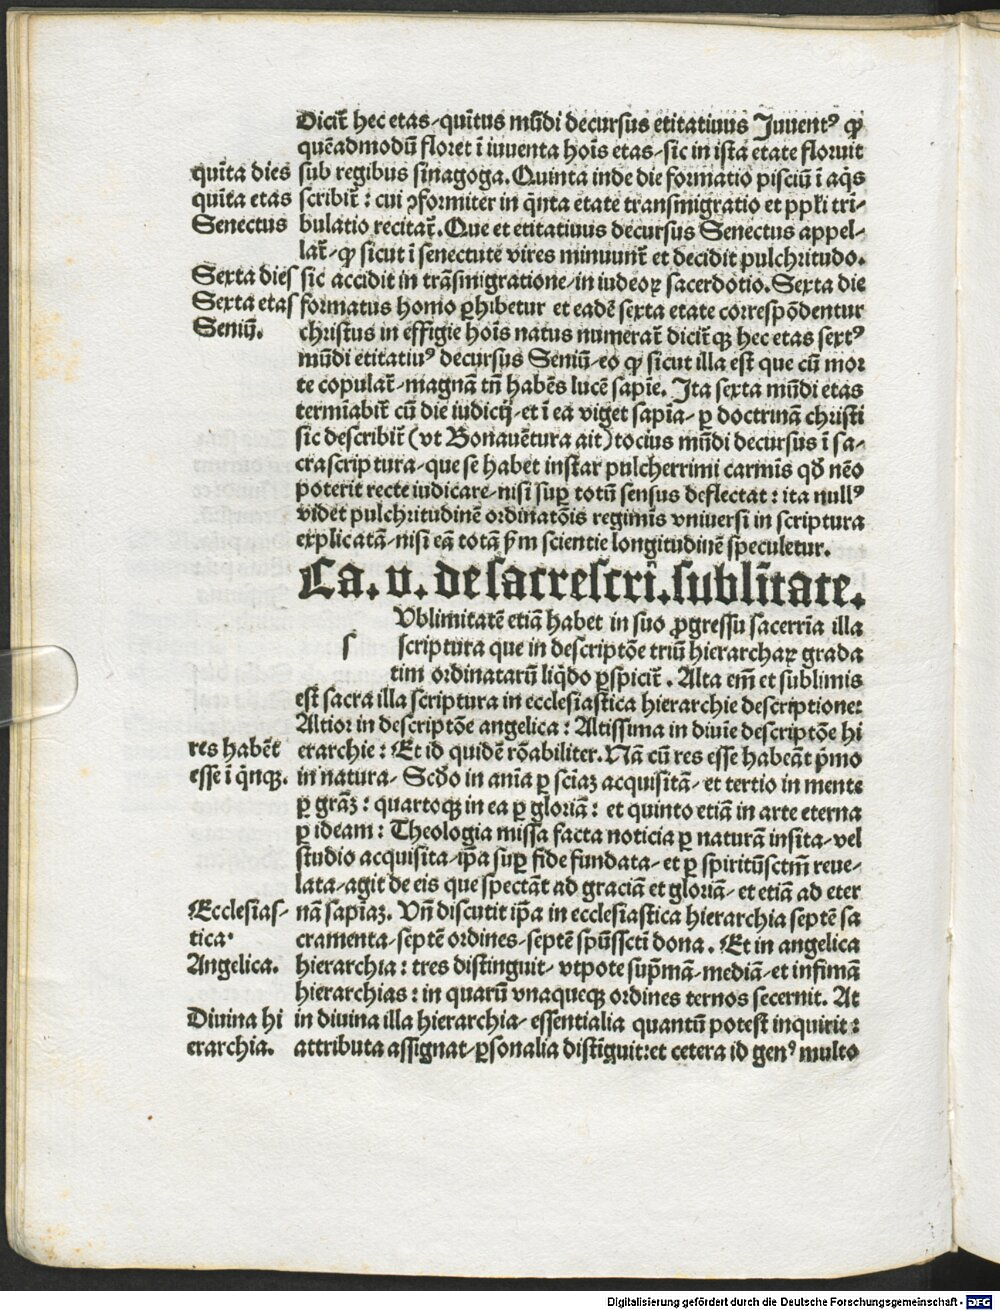 Dicit̃ hec etas-quĩtus mũdi decursus etitatiuus Juuentꝰ ꝙ
quẽadmodũ floret ĩ iuuenta hoĩs etas-sic in ista etate floruit
quĩta dies
sub regibus sinagoga. Quinta inde die formatio pisciũ ĩ aq̃s
quĩta etas
scribit̃ : cui ↄformiter in qͥnta etate transmigratio et ppl̃i tri-
Senectus
bulatio recitat̃. Que et etitatiuus decursus Senectus appel-
lat̃-ꝙ sicut ĩ senectute vires minuunt̃ et decidit pulchritudo.
Sexta dies
sic accidit in trãsmigratione-in iudeoꝝ sacerdotio. Sexta die
Sexta etas
formatus homo ꝑhibetur et eadẽ sexta etate correspõdentur
Seniũ.
christus in effigie hoĩs natus numerat̃ dicit̃qꝫ hec etas sextꝰ
mũdi etitatiuꝰ decursus Seniũ-eo ꝙ sicut illa est que cũ mor
te copulat̃-magnã tñ habẽs lucẽ sapiẽ. Ita sexta mũdi etas
termĩabit̃ cũ die iudicij-et ĩ ea viget sapĩa-ꝑ doctrinã christi
sic describit̃ (vt Bonauẽtura ait) tocius mũdi decursus ĩ sa-
crascriptura-que se habet instar pulcherrimi carmĩs qd̃ nẽo
poterit recte iudicare-nisi suꝑ totũ sensus deflectat : ita nullꝰ
videt pulchritudinẽ ordinatõis regimĩs vniuersi in scriptura
explicatã-nisi eã totã ẜm scientie longitudinẽ speculetur.
Ca. v. de sacre scri. sublĩtate.
Vblimitatẽ etiã habet in suo ꝓgressu sacerrĩa illa
s
scriptura que in descriptõe triũ hierarchaꝝ grada
tim ordinatarũ liq̃do ꝑspicit̃. Alta em̃ et sublimis
est sacra illa scriptura in ecclesiastica hierarchie descriptione:
Altior in descriptõe angelica : Altissima in diuĩe descriptõe hi
res habẽt
erarchie : Et id quidẽ rõabiliter. Nã cũ res esse habeãt p̃mo
esse ĩ qͥnqꝫ.
in natura- Scd̃o in anĩa ꝑ sciaꝫ acquisitã-et tertio in mente
ꝑ grãꝫ : quartoqꝫ in ea ꝑ gloriã : et quinto etiã in arte eterna
ꝑ ideam : Theologia missa facta noticia ꝑ naturã insita-vel
studio acquisita-ip̃a suꝑ fide fundata-et ꝑ spiritũsctm̃ reue-
lata-agit de eis que spectãt ad graciã et gloriã-et etiã ad eter
Ecclesias-
nã sapĩaꝫ. Vñ discutit ip̃a in ecclesiastica hierarchia septẽ sa
tica.
cramenta-septẽ ordines-septẽ spũsscti dona. Et in angelica
Angelica.
hierarchia : tres distinguit- vtpote sup̃mã-mediã-et infimã
hierarchias : in quarũ vnaqueqꝫ ordines ternos secernit. At
Diuina hi
in diuina illa hierarchia-essentialia quantũ potest inquirit :
erarchia.
attributa assignat-ꝑsonalia distĩguit:et cetera id genꝰ multo
Digitalisierung gefördert durch die Deutsche Forschungsgemeinschaft - DFG